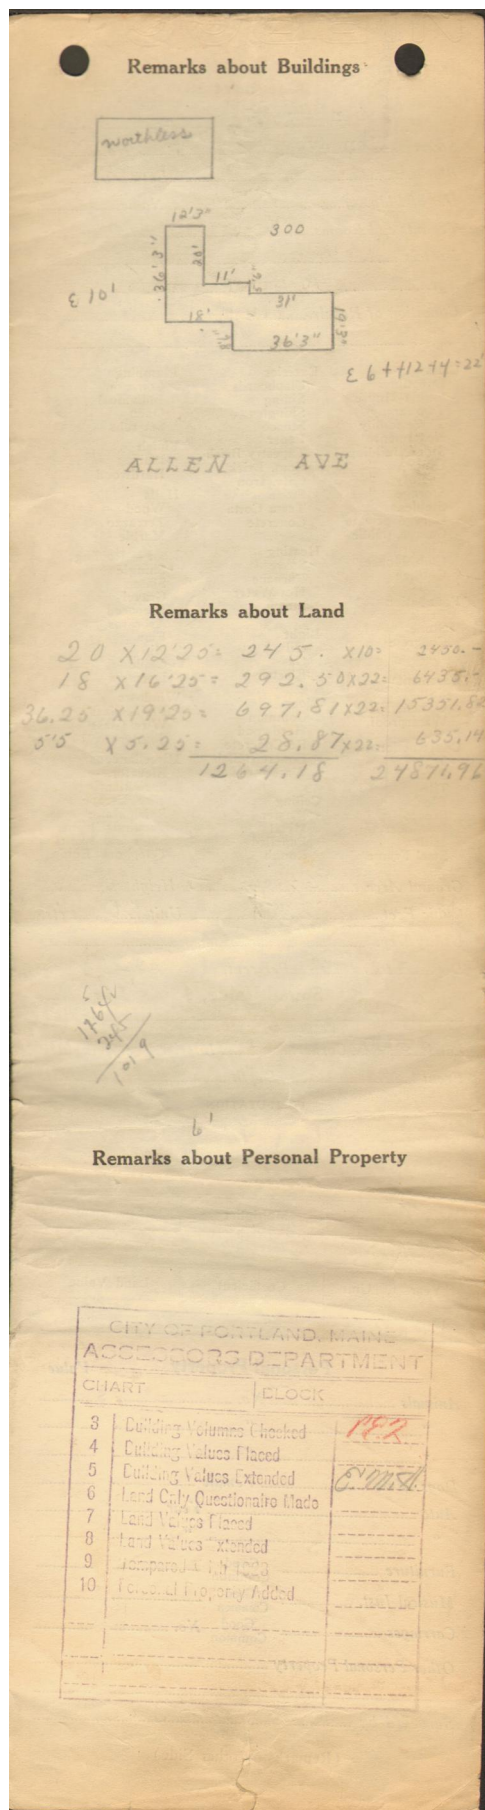 Remarks about Buildings
worthless
12'3"
300
36'3"
20'
11'
31'
ε 10'
18'
19'3"
36'3"
ALLEN AVE
Remarks about Land
20 X 12'25= 245. X10= 2450.-
18 X 16'25= 292.50X22= 6435.-
36.25 X19'25= 697.81X22= 15351.82
5'5 X 5.25= 28.87X22= 635.14
1264.18 24871.96
245
1019
6'
Remarks about Personal Property
CITY OF PORTLAND, MAINE
ASSESSORS DEPARTMENT
CHART BLOCK
3 Building Volumns Checked
4 Building Values Placed
5 Building Values Extended E.M.H.
6 Land Only Questionaire Made
7 Land Values Placed
8 Land Values Extended
9 Compared
10 Personal Property Added